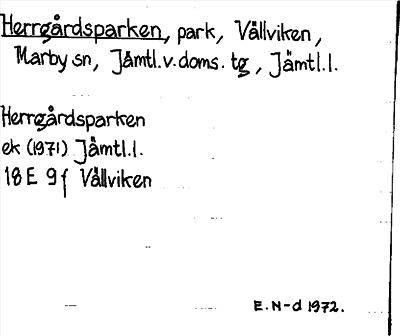 Herrgårdsparken, park, Vällviken,
Marby sn, Jämtl.v.doms. tg, Jämtl.l.
Herrgårdsparken
ek (1971) Jämtl.l.
18 E 9 f Vällviken
E. N-d 1972.